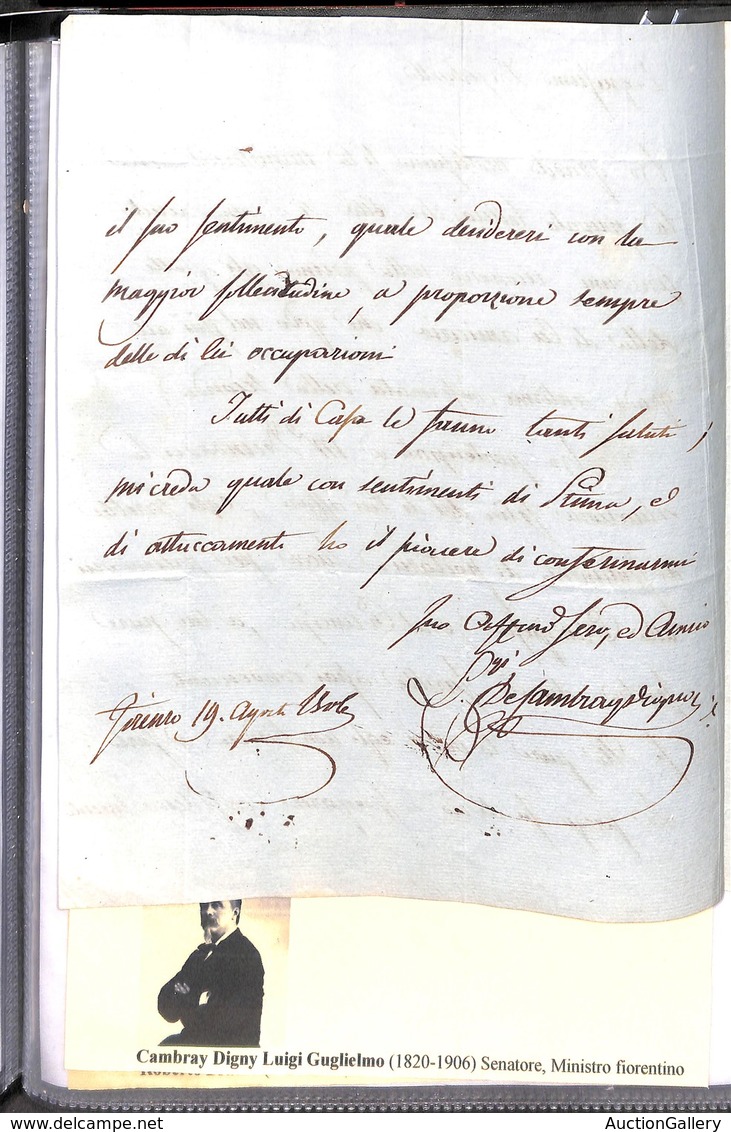 il suo sentimento, quale desidererei con la
maggior sollecitudine, a proporzione sempre
delle di lei occupazioni
Tutti di Casa le fanno tanti saluti,
mi creda quale con sentimenti di Stima, ed
di attaccamento ho il piacere di confermarmi
Suo Affmo Serv, ed Amico
De Cambray Digny
Firenze 19. Agosto
Cambray Digny Luigi Guglielmo (1820-1906) Senatore, Ministro fiorentino
AuctionGallery